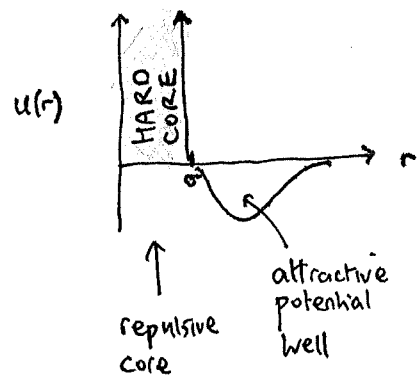 u(r)
HARD
CORE
r
a
attractive
potential
well
repulsive
core